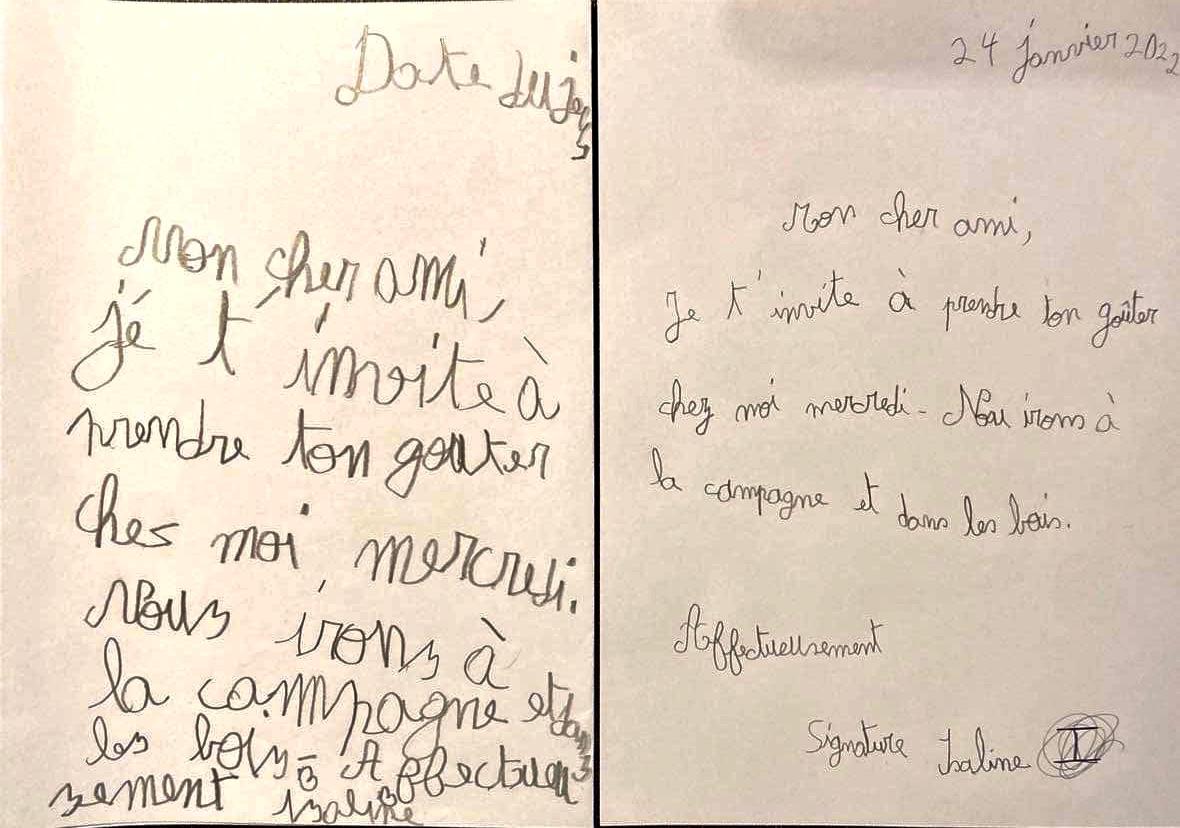 Date du jour
Mon cher ami,
je t'invite à
prendre ton gouter
ches moi mercredi.
Nous irons à
la campagne et dans
les bois. Affectueu
sement Isaline
24 janvier 2022
Mon cher ami,
Je t'invite à prendre ton goûter
chez moi mercredi. Nou irons à
la campagne et dans les bois.
Affectueusement
Signature Isaline I